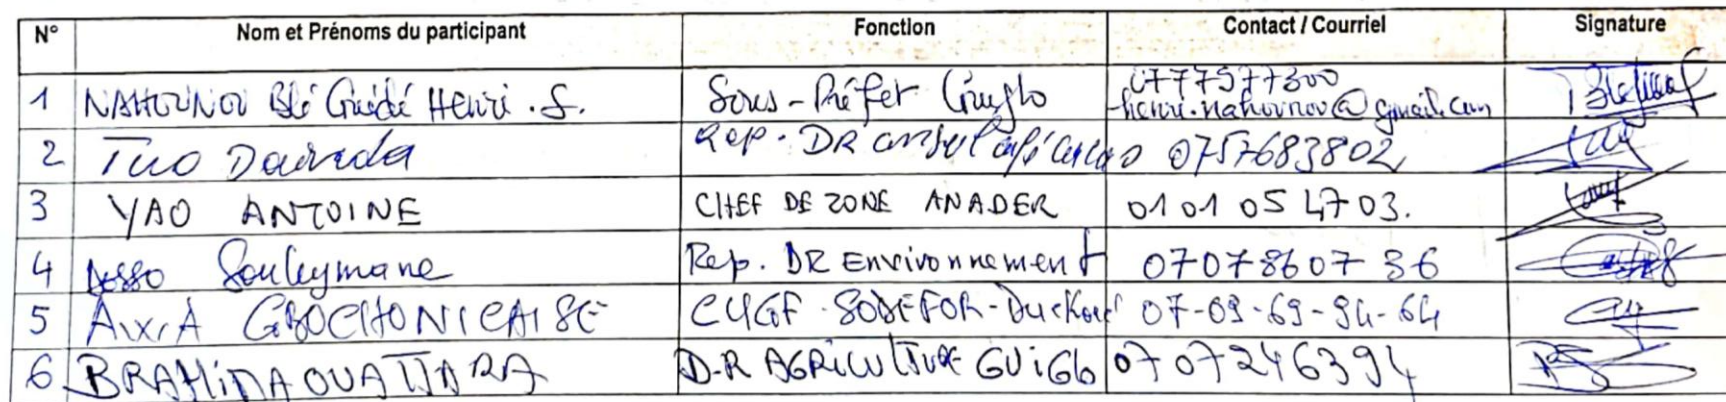 N° Nom et Prénoms du participant Fonction Contact / Courriel Signature
1 NAHOUNOU Blé Guédé Henri . S. Sous-Préfet Guiglo 0777577300
henri.nahounou@gmail.com
2 Tuo Daouda Rep. DR conseil café cacao 0757683802
3 YAO ANTOINE CHEF DE ZONE ANADER 01 01 05 47 03.
4 Souleymane Rep. DR Environnement 0707860736
5 CUGF SODEFOR-Duekoué 07-09-69-94-64
6 BRAHIMA OUATTARA D.R AGRICULTURE GUIGLO 0707246394